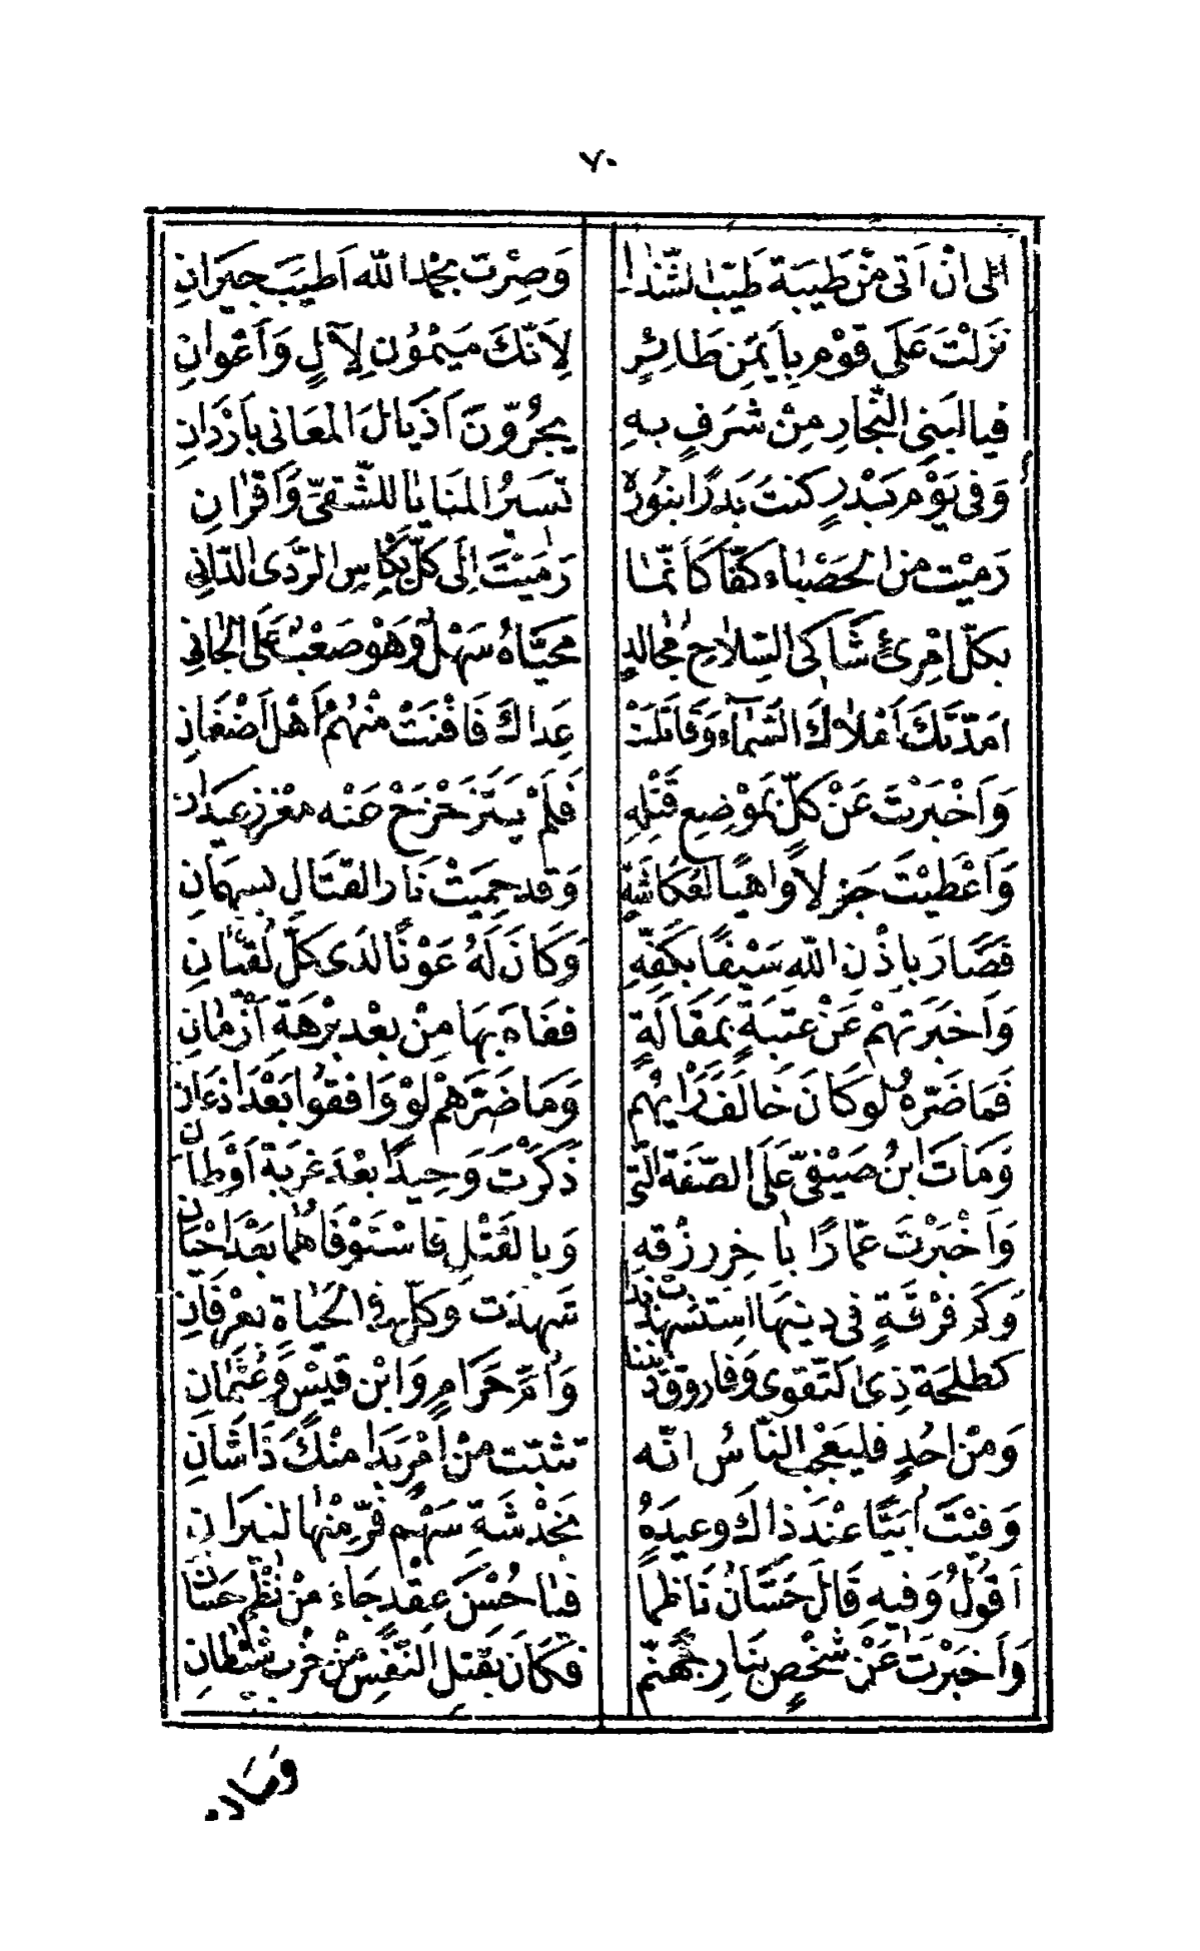 ٧٠
الى ان اَتى مِنْ طَيبَة طيّب الشّذا وَصِرْت بحمد الله اَطيَبَ جيَرانِ
نَزَلْتَ عَلَى قوْم بِاَيمَنِ طَائِرٍ لِاَنّكَ مَيْمُوُن لِآلٍ وَاَعْوانِ
فيا لبَنِى النّجارِ مِنْ شَرَفٍ بهِ يجُرُّونَ اَذيَالَ المَعَانى بِاَرْدَانِ
وَفى يَوْم بَدْرٍ كنتَ بَدرًا بنوره تسَيرُ المنَايَا للشّقىّ وَاَقْرانِ
رَمَيْت من الحَصْباء كفّا كاَنّما رَمَيْتَ اِلى كلّ بكاسِ الرّدَى الدّانِى
بكلّ امْرِئٍ شَاكى السّلاحِ مجالدٍ محَيّاهُ سَهْل وَهْو صَعْب عَلى الجانِى
امَدّتكَ اَمْلاك السَّمآء وَقاتلَتْ عَداك فَافْنَتْ منْهُمْ اَهْل اَضْغَانِ
وَاَخْبَرْتَ عَنْ كلّ بمَوْضِعِ قَتْلِهِ فَلَمْ يَتَزَحْزَحْ عَنْه
وَاَعْطيْتَ جَزلاً واهيًا لعُكاشَةٍ وَقد حمِيَتْ نَار القتَالِ
فَصَارَ بِاذْنِ اللهِ سَيْفًا بكفّهِ وَكَانَ لَهُ عَوْنًا لدَى كلّ
وَاَخبَرتهُمْ عَنْ عتبَةٍ بمَقَالَةٍ ففَاهَ بهَا مِنْ بعْد برْهَة اَزْمانِ
فَمَا ضَرّهُ لوكَانَ خَالفَ رَأيهُم وَمَا ضَرّهمْ لَوْ وَافقوا بَعْدَ اذعَانِ
وَمَاتَ ابنُ صَيْفىّ عَلَى الصّفَة الّتى ذَكَرْتَ وَحيدًا بعْدَ غربَة اَوْطانِ
وَاَخْبَرْتَ عمّارًا باخِر رزْقهِ وَبالقَتْلِ فاسْتَوْفَاهُما بَعْدَ احْيَانِ
وَكم فرْقَةٍ فى دينهَا استشهدت شَهِدْتَ وَكلّ فى الحَيَاةِ بعرْفَانِ
كطلحَة ذِى التّقوى وَفاروق ديننا وَاُمّ حَرَامٍ وَابْن قيْس وَعُثمانِ
وَمنْ اُحُدٍ فليعَجْب النّاسُ انّه تثبّت منْ اَمْرٍ بَدَا منْكَ ذَا شَانِ
وَفيْتَ اُبَيّا عنْدَ ذاك وعيدَهُ بخَدْشَةِ سَهْم فرّ منْها لنيرَانِ
اَقولُ وَفيهِ قَالَ حَسَّانُ نَاظمًا فيا حُسْنَ عِقْدٍ جَاءَ مِنْ نَظْم حسَّانِ
وَاَخبَرْتَ عَنْ شخْصٍ بنَارِ جَهنّمٍ فكَانَ بقَتل النّفْس مِنْ حزْب شيْطَانِ